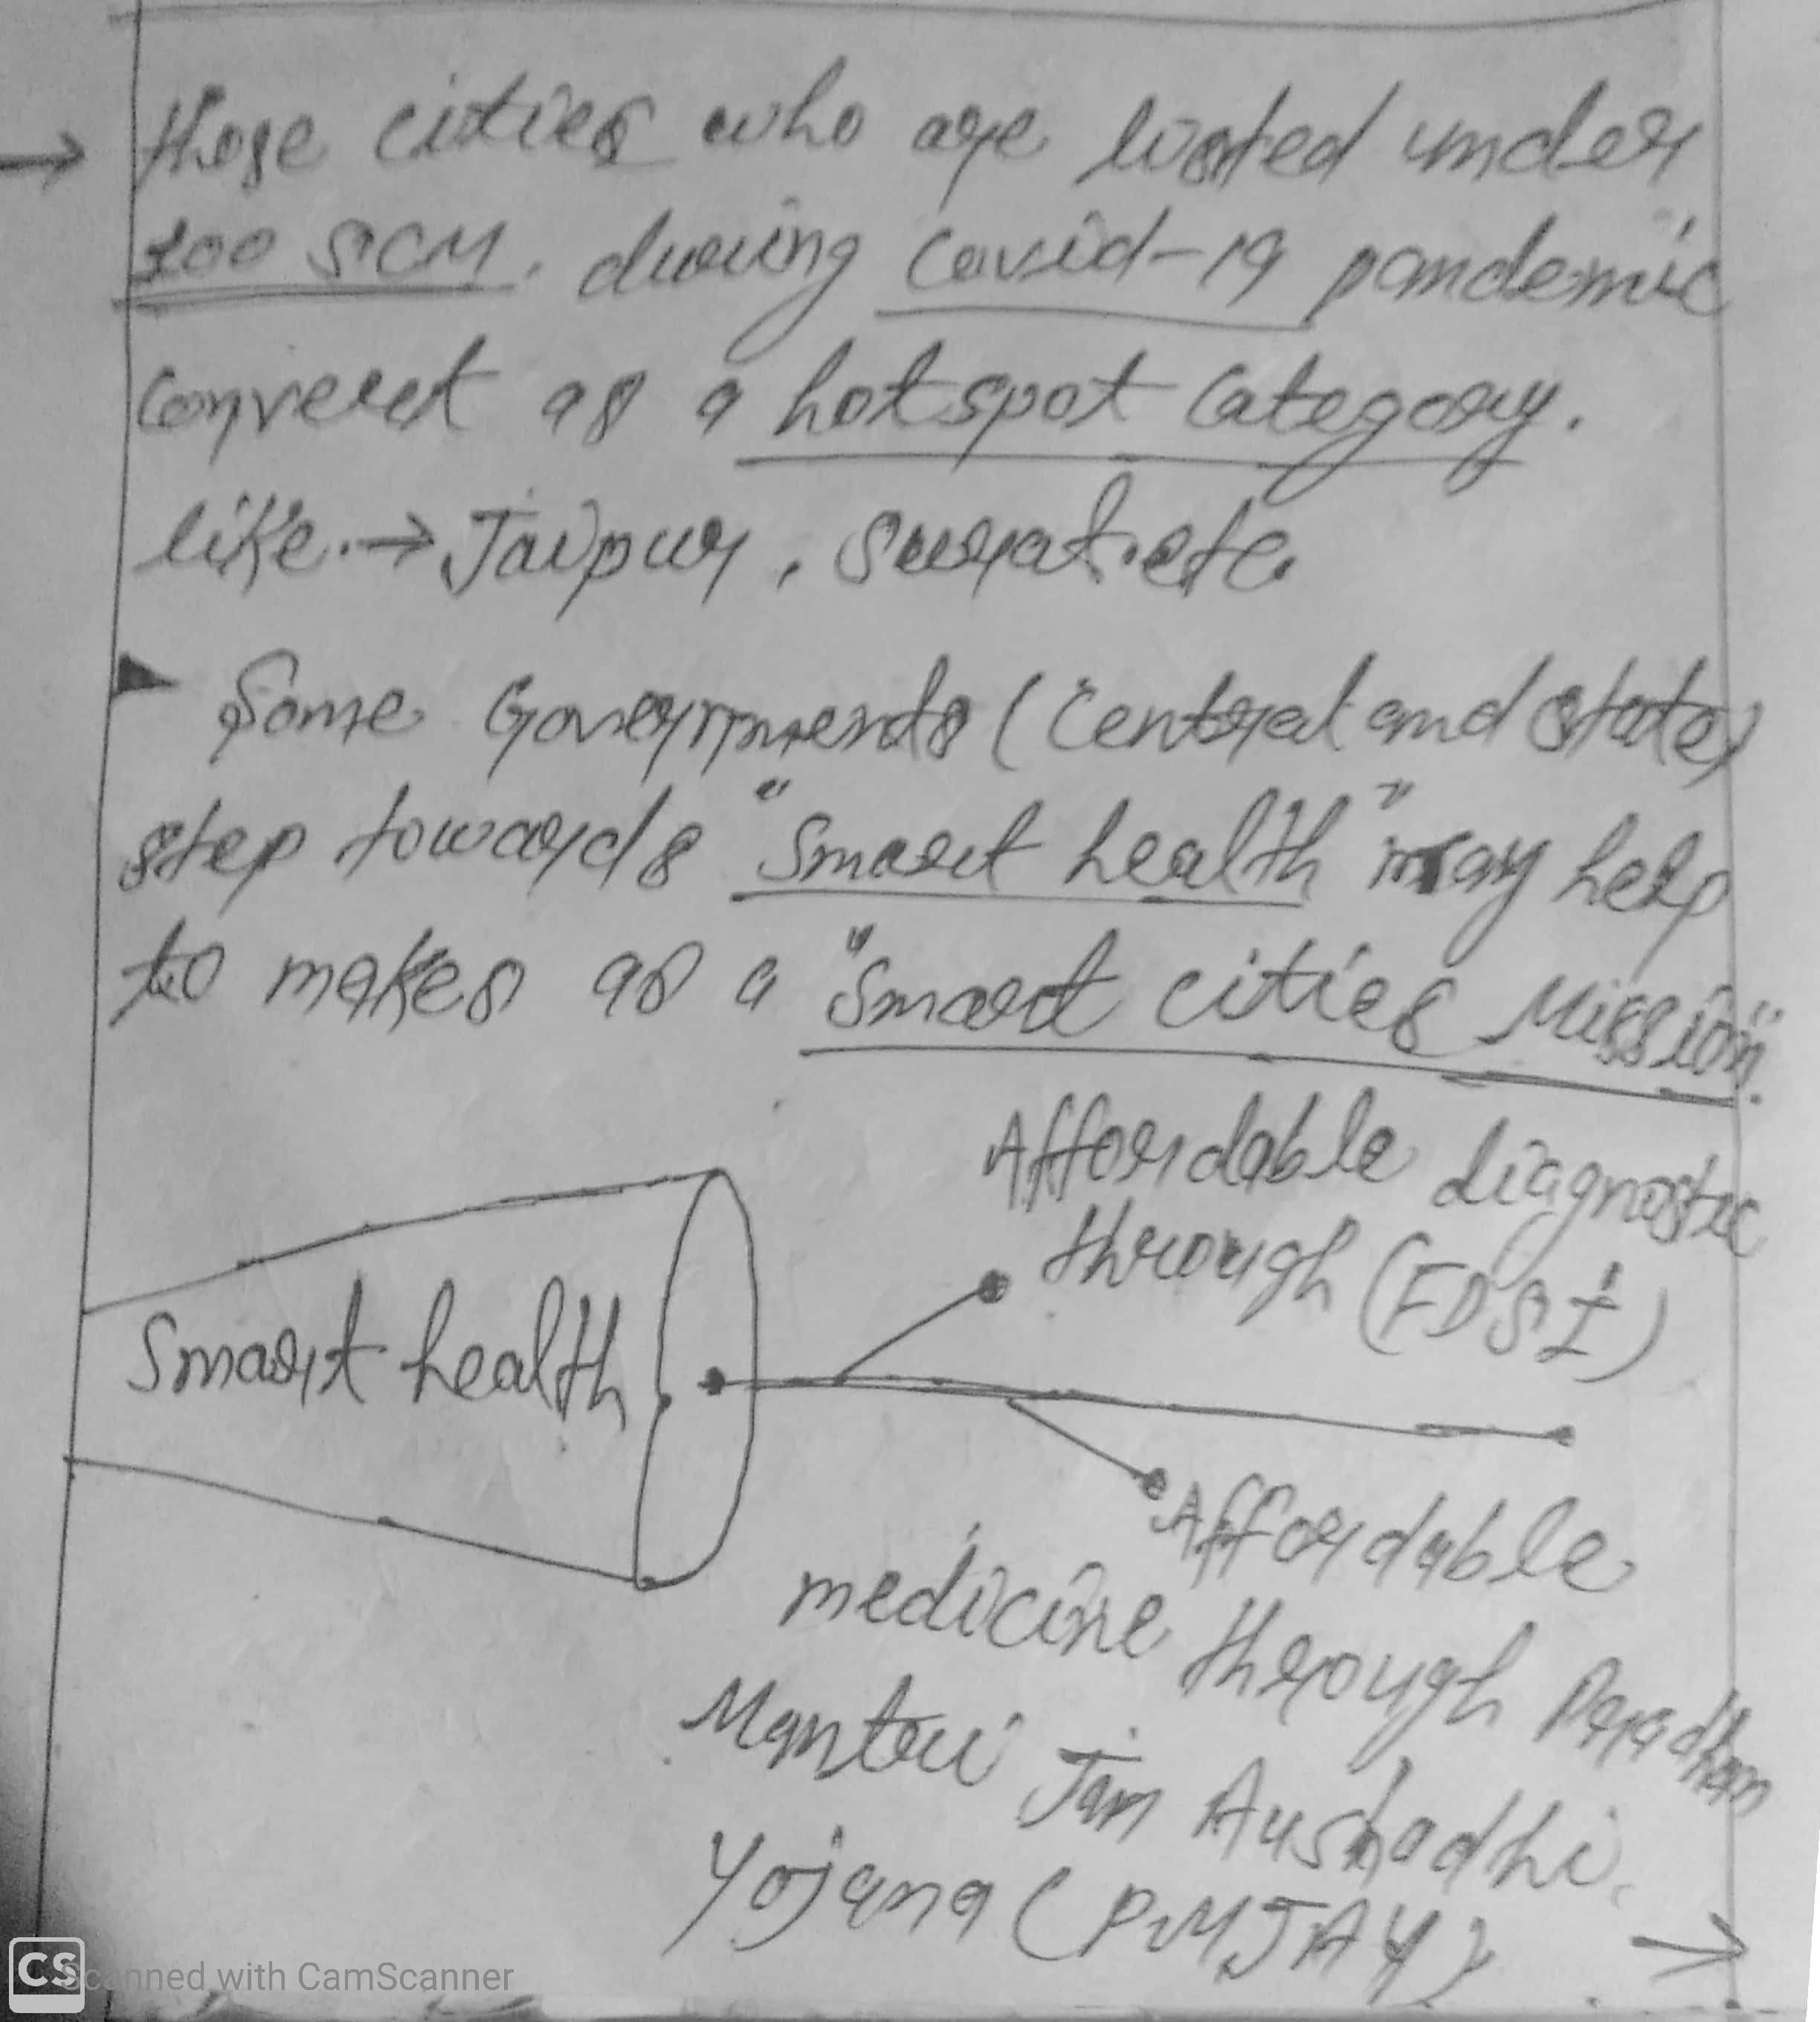 → those cities who are listed under
100 SCM. during Covid-19 pandemic
convert as a hotspot Category.
like.→ Jaipur, Surat.etc.
Some Governments (Central and state)
step towards "Smart health" may help
to makes as a "Smart cities Mission".
Affordable diagnostic
through (FDSI)
Smart health
Affordable
medicine through Pradhan
Mantri Jan Aushadhi
Yojana (PMJAY) →
CS Scanned with CamScanner